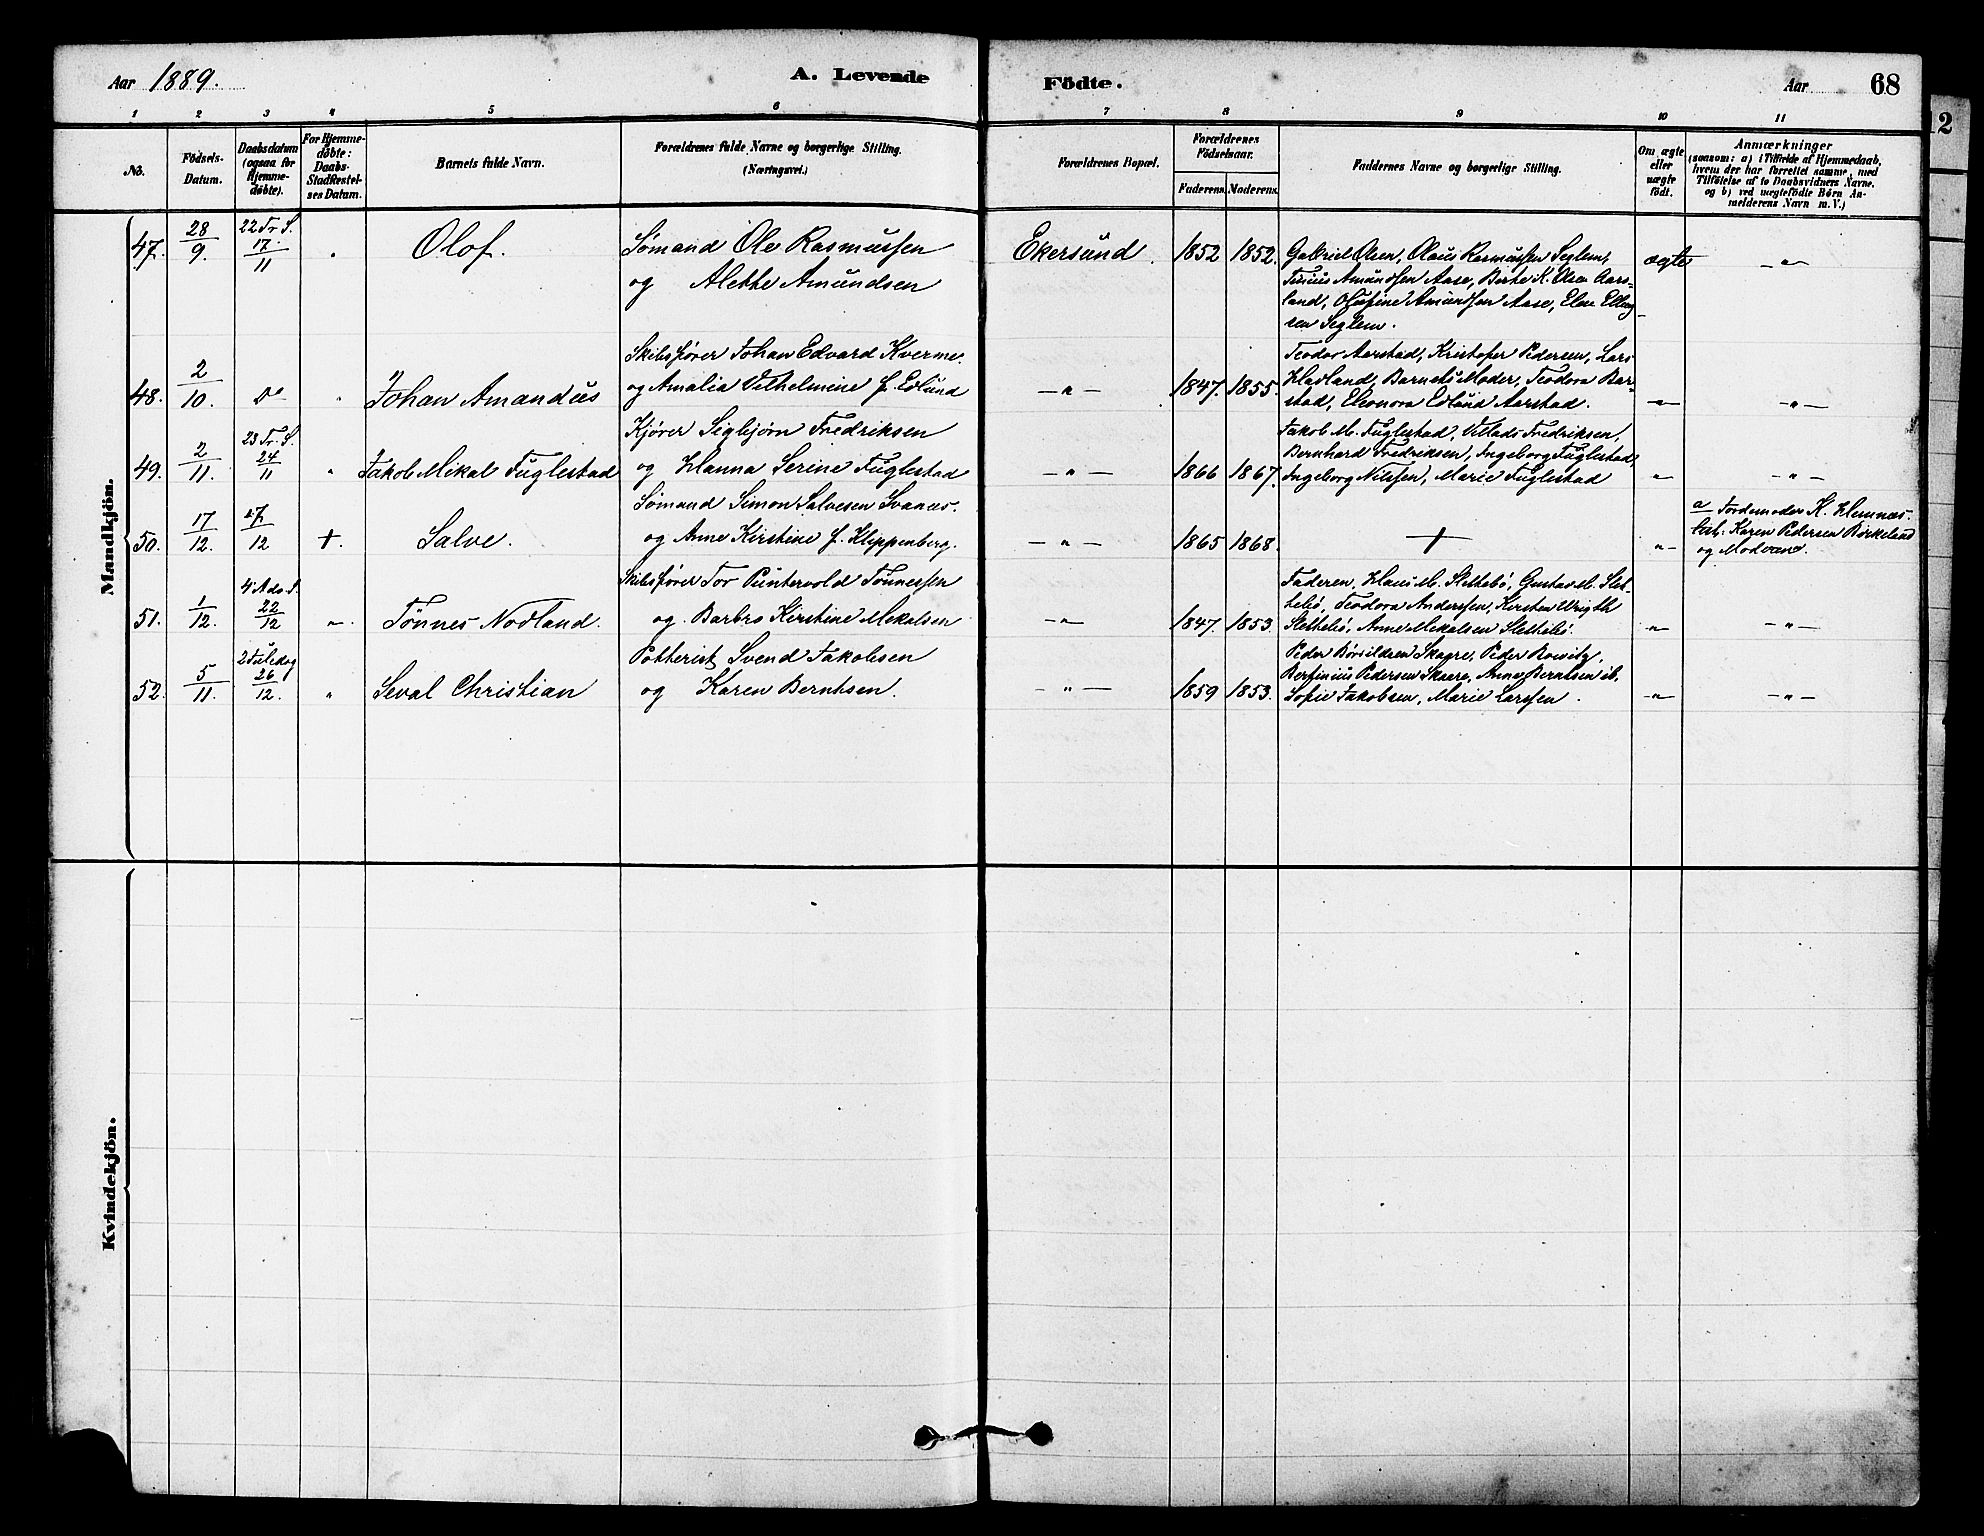 Aar 1889.
A. Levende
Födte.
Aar
68
12
1 2 3 4 5 6 7 8 9 10 11
No.
Födsels-
Datum.
Daabsdatum
(ogsaa for
Hjemme-
døbte).
For Hjemme-
døbte:
Daabs-
Stadfæstel-
ses Datum.
Barnets fulde Navn.
Forældrenes fulde Navne og borgerlige Stilling.
(Næringsvei.)
Forældrenes Bopæl.
Forældrenes
Födselsaar.
Faderens. Moderens.
Faddernes Navne og borgerlige Stilling.
Om ægte
eller
uægte
født.
Anmærkninger
(saasom: a) i Tilfælde af Hjemmedaab,
hvem der har forrettet samme, med
Tilföielse af to Daabsvidners Navne,
og b) ved uægtefödte Börn An-
melderens Navn m. V.)
Mandkjön.
47. 28/9. 22 Tr. S. 17/11 "
Olof.
Sømand Ole Rasmussen
og Alette Amundsen
Ekersund.
1852 1852.
Gabriel Olsen, Olaus Rasmussen Seglem,
Tinius Amundsen Aase, Berte K. Olsen Aars-
land, Olufine Amundsen Aase, Elen Elling-
sen Seglem.
ægte
—"—
48. 2/10. Do "
Johan Amandus
Skibsfører Johan Edvard Kverme.
og Amalia Vilhelmine f. Edlund
—"—
1847. 1855.
Teodor Aarstad, Kristofer Pedersen, Lars
Hadland, Barnets Moder, Teodora Bar-
stad, Eleonora Edlund Aarstad.
—"—
—"—
49. 2/11. 23 Tr. S. 24/11 "
Jakob Mikal Fuglestad
Kjører Sigbjørn Fredriksen
og Hanna Serine Fuglestad
—"—
1866 1867.
Jakob M. Fuglestad, Villads Fredriksen,
Bernhard Fredriksen, Ingeborg Fuglestad,
Ingeborg Nilssen, Marie Fuglestad
"—
—"—
50. 17/12. 17/12 +.
Salve.
Sømand Simon Salvesen Svanes.
og Anne Kirstine f. Klippenberg.
—"—
1865 1868.
+
"—
a Jordemoder K. Hemnes.
Karen Pedersen Birkeland
og Moderen.
51. 1/12. 4 Adv. S. 22/12 "
Tønnes Nodland.
Skibsfører Tor Puntervold Tønnessen
og Barbro Kirstine Mekalsen
—"—
1847. 1853.
Faderen, Hans M. Slettebø, Gustav M. Slet-
tebø, Teodora Anderssen, Kirsten Wrigth
Slettebø, Anne Mekalsen Slettebø.
"—
—"—
52. 5/11. 2 Juledag 26/12. "
Seval Christian
Potterist Svend Jakobsen
og Karen Berntsen.
—"—
1859 1853.
Peder Skaare, Peder Bowitz,
Bertinius Pedersen Skaare, Anne Berntsen ib.
Sofie Jakobsen, Marie Larssen.
"—
—"—
Kvindekjön.